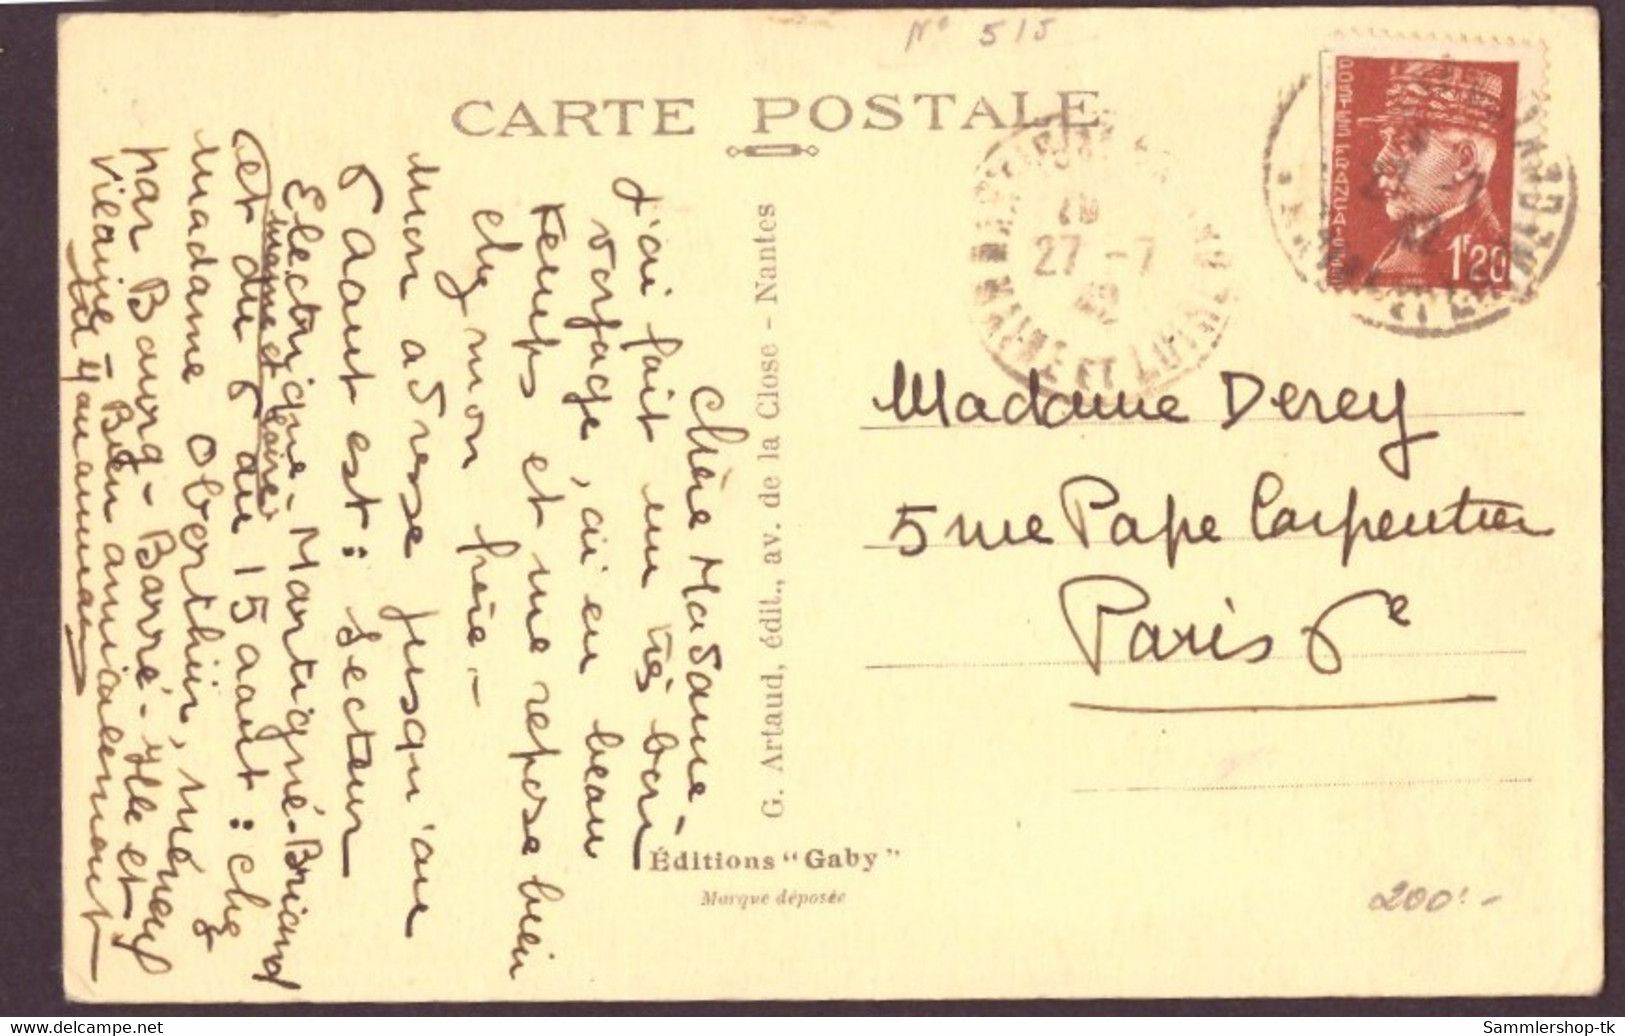 N° 515
CARTE POSTALE
27 -7
42
POSTES FRANÇAISES
1F20
Chère Madame -
J'ai fait un très bon
voyage, ai eu beau
temps et me repose bien
chez mon frère -
Mon adresse jusqu'au
6 Aout est : Secteur
Electrique - Martigné-Briand
Maine et Loire
et du 6 au 15 aout : chez
madame Oberthür, Ménouf
par Bourg-Barré - Ille et
Vilaine - Bien amicalement
G. Artaud, édit., av. de la Close - Nantes
Éditions "Gaby"
Marque déposée
Madame Derey
5 rue Pape Carpentier
Paris 6e
200.-
Sammlershop-tk